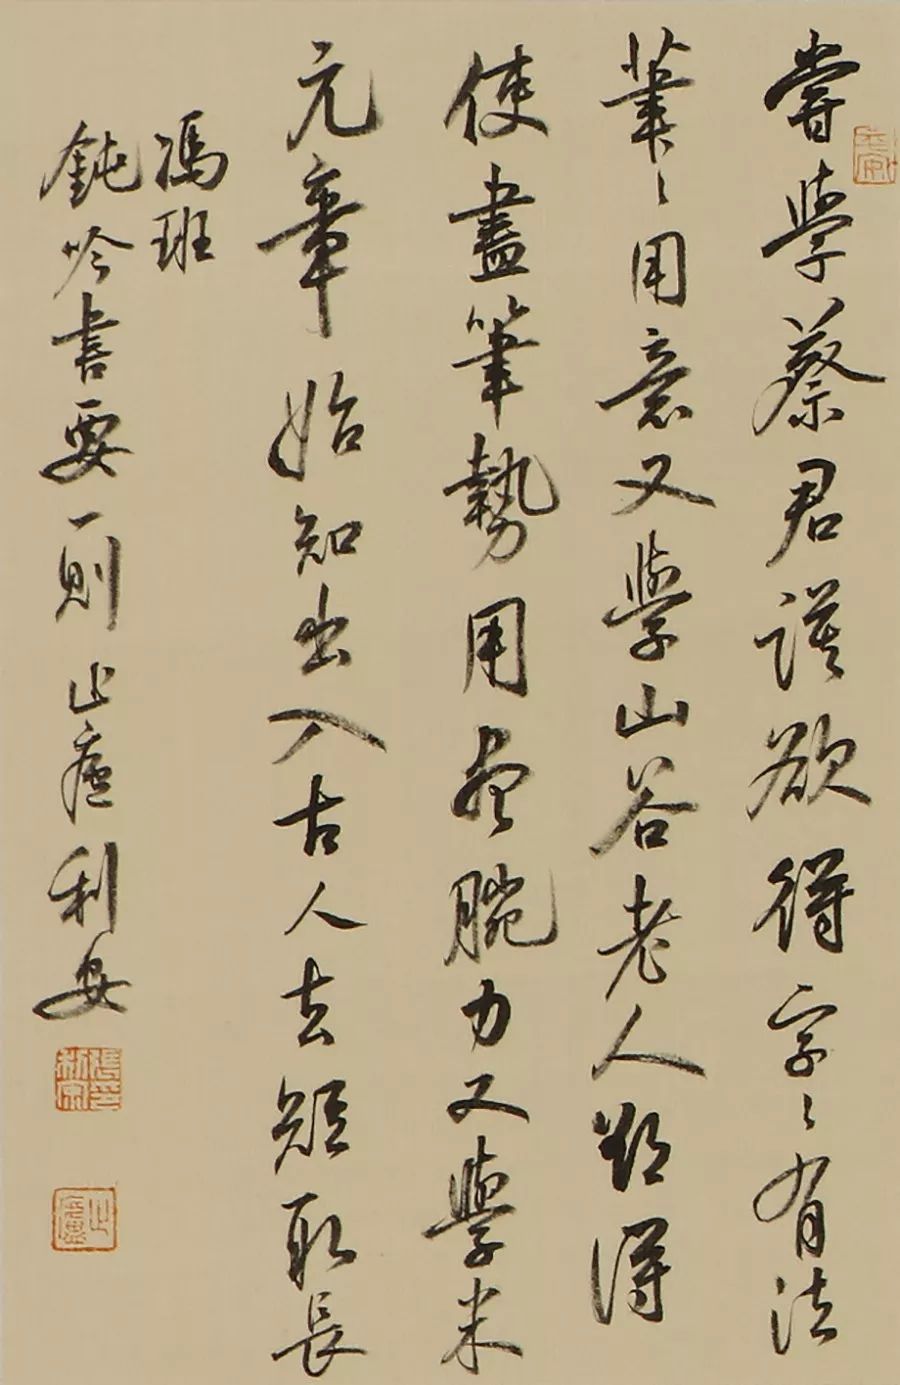 嘗學蔡君謨欲得字〻有法
筆〻用意又學山谷老人欲得
使盡筆勢用盡腕力又學米
元章始知出入古人去短取長
馮班
鈍吟書要一則止廬利安